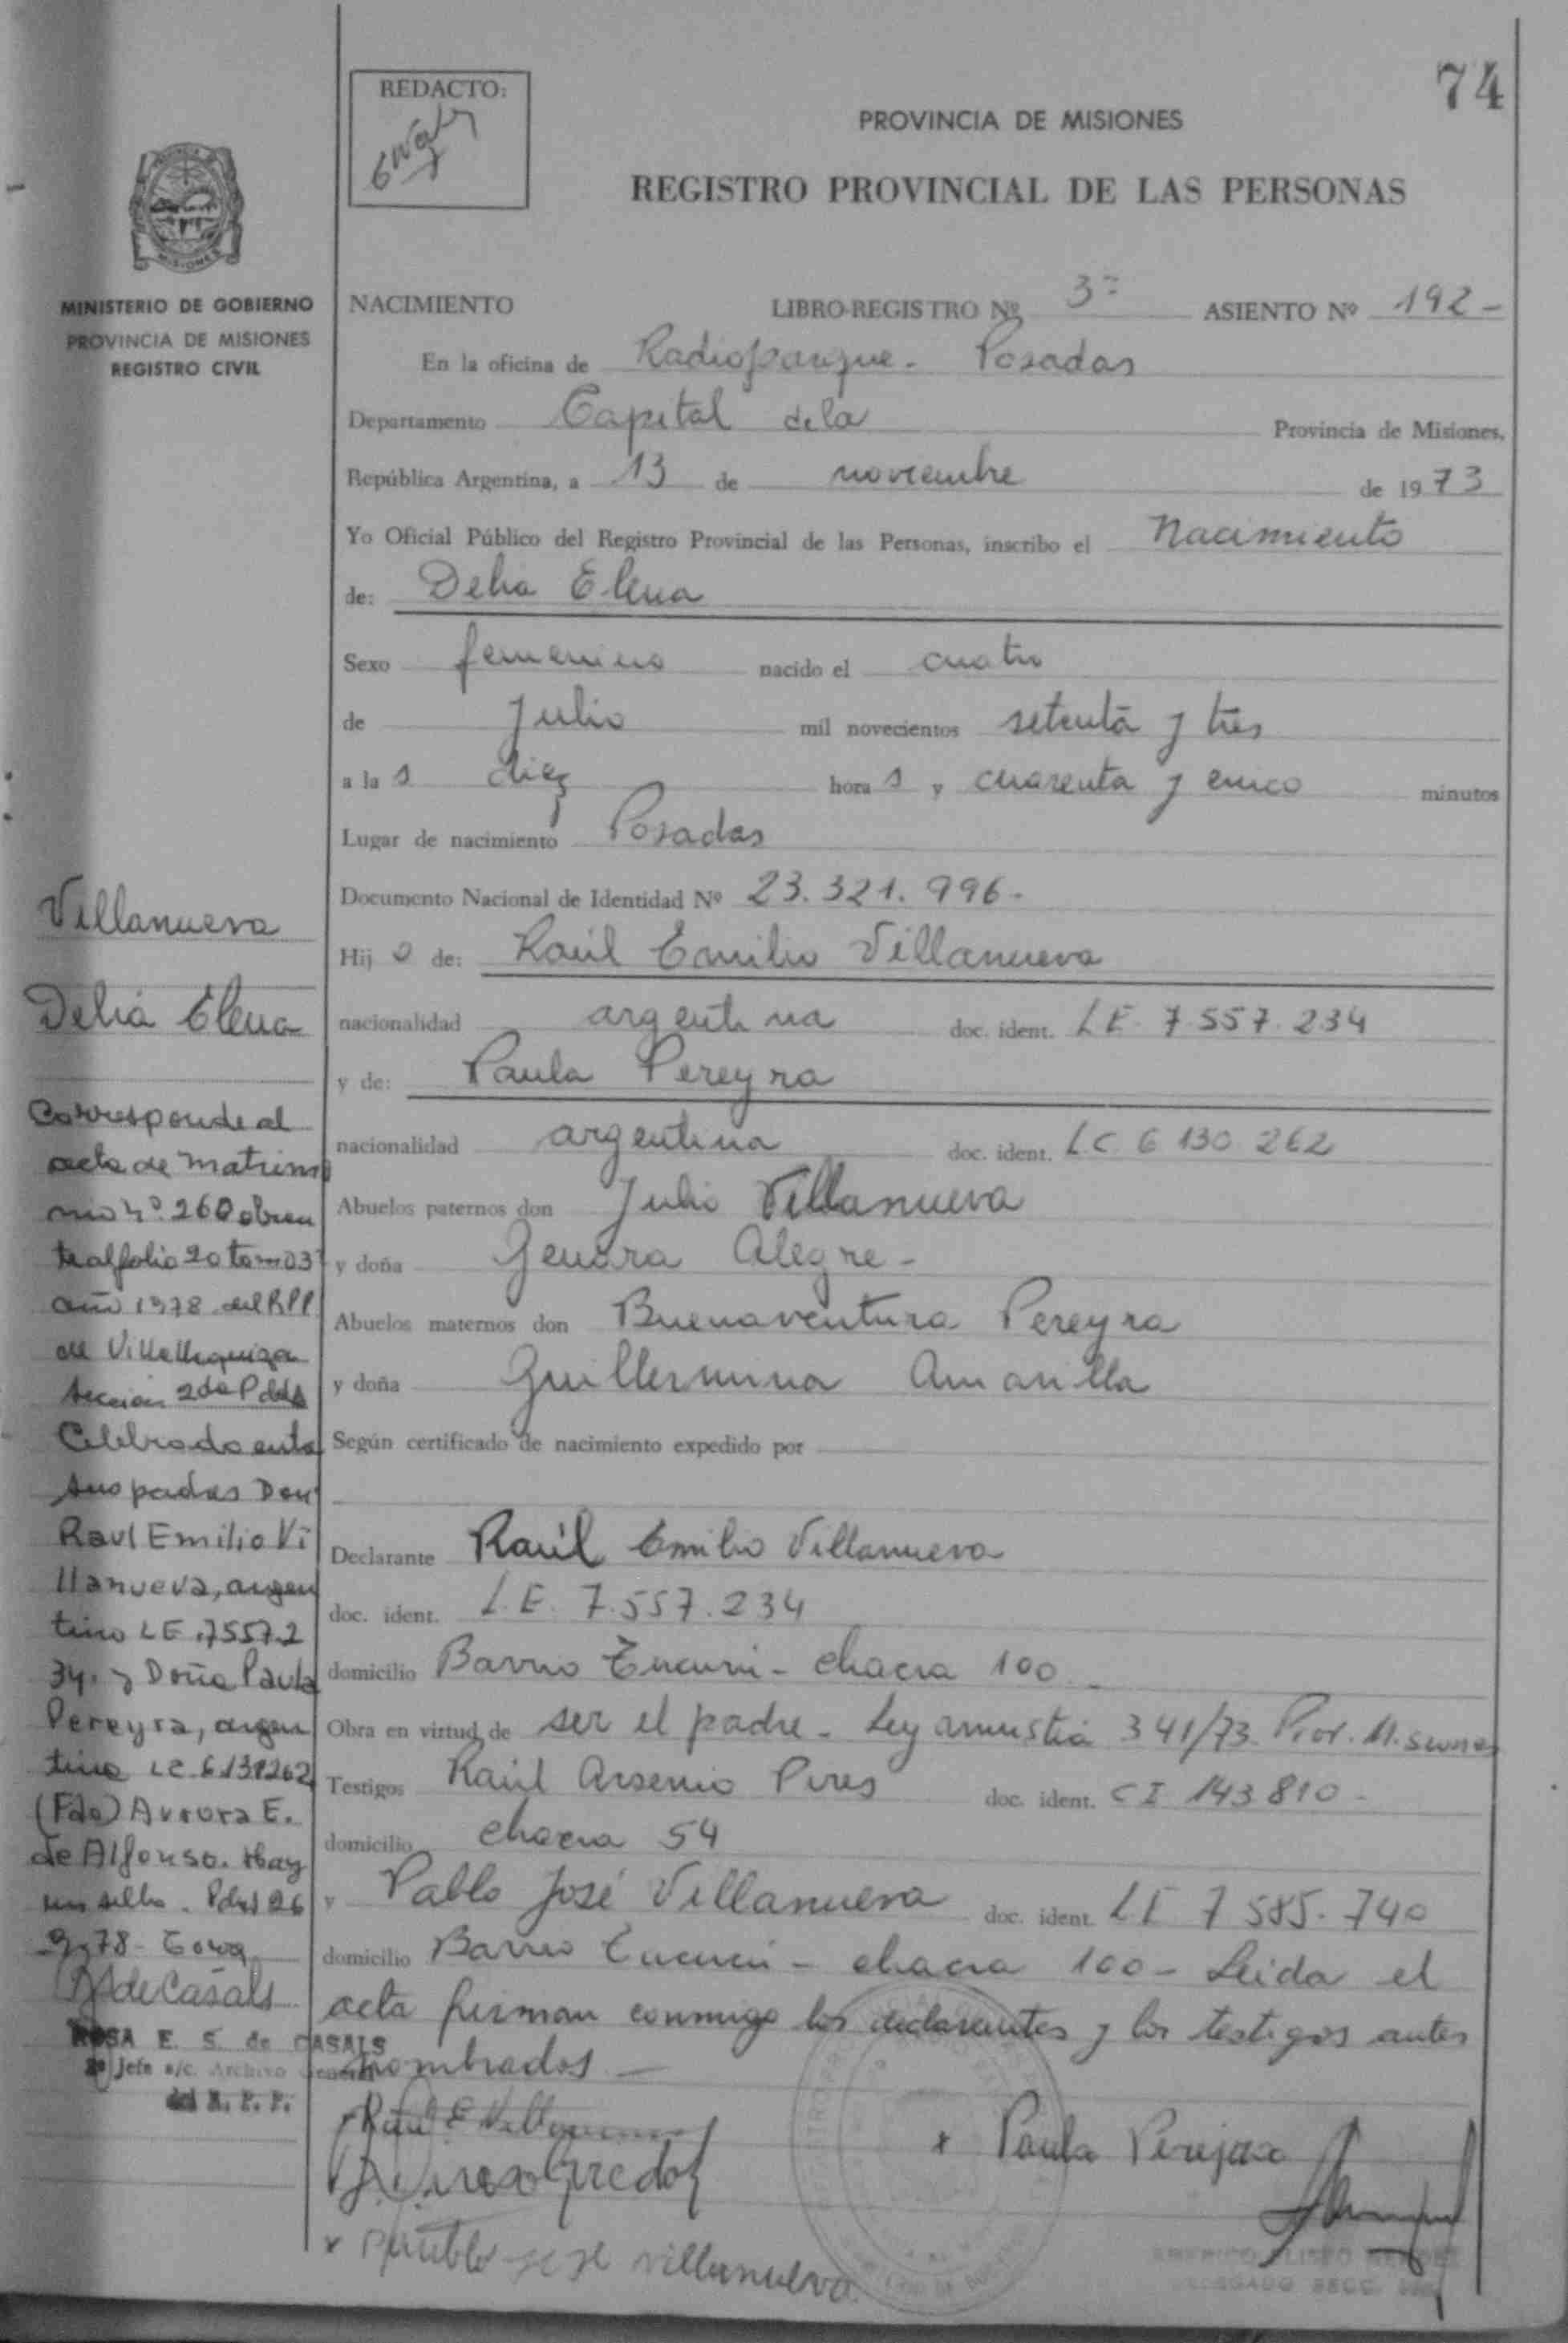 74
REDACTO:
PROVINCIA DE MISIONES
REGISTRO PROVINCIAL DE LAS PERSONAS
MISIONES
MINISTERIO DE GOBIERNO
PROVINCIA DE MISIONES
REGISTRO CIVIL
NACIMIENTO LIBRO-REGISTRO Nº 3º ASIENTO Nº 192-
En la oficina de Radioparque - Posadas
Departamento Capital de la Provincia de Misiones,
República Argentina, a 13 de noviembre de 1973
Yo Oficial Público del Registro Provincial de las Personas, inscribo el Nacimiento
de: Delia Elena
Sexo femenino nacido el cuatro
de Julio mil novecientos setenta y tres
a las diez horas y cuarenta y cinco minutos
Lugar de nacimiento Posadas
Documento Nacional de Identidad Nº 23.321.996-
Hijo de: Raúl Emilio Villanueva
nacionalidad argentina doc. ident. LE. 7.557.234
y de: Paula Pereyra
nacionalidad argentina doc. ident. LC 6 130 262
Abuelos paternos don Julio Villanueva
y doña Genara Alegre-
Abuelos maternos don Buenaventura Pereyra
y doña Guillermina Amarilla
Según certificado de nacimiento expedido por
Declarante Raúl Emilio Villanueva
doc. ident. L.E. 7.557.234
domicilio Barrio - chacra 100
Obra en virtud de ser el padre - Ley amnistia 341/73 Prov. Misiones
Testigos Raúl Arsenio Pires doc. ident. CI 143 810-
domicilio chacra 54
y Pablo José Villanueva doc. ident. LE 7 585.740
domicilio Barrio - chacra 100 - Leida el
acta firman conmigo los declarantes y los testigos antes
nombrados -
Raul E Villanueva
x Paula Pereyra
x José villanueva
Villanueva
Delia Elena
Corresponde al
acta de matrimo
nio nº 260 obran
te al folio 20 tomo 3º
año 1978 del RPP
de Villa Urquiza
seccion 2da Pdas
Celebrado entre
sus padres Don
Raul Emilio Vi
llanueva, argen
tino LE.75572
34. y Doña Paula
Pereyra, argen
tina LC 6.130262
(Fdo) Aurora E.
de Alfonso. Hay
un sello. Pdas 26
9-78-
de Casals
ROSA E. S. de CASALS
2º Jefe a/c. Archivo General
del R. P. P.